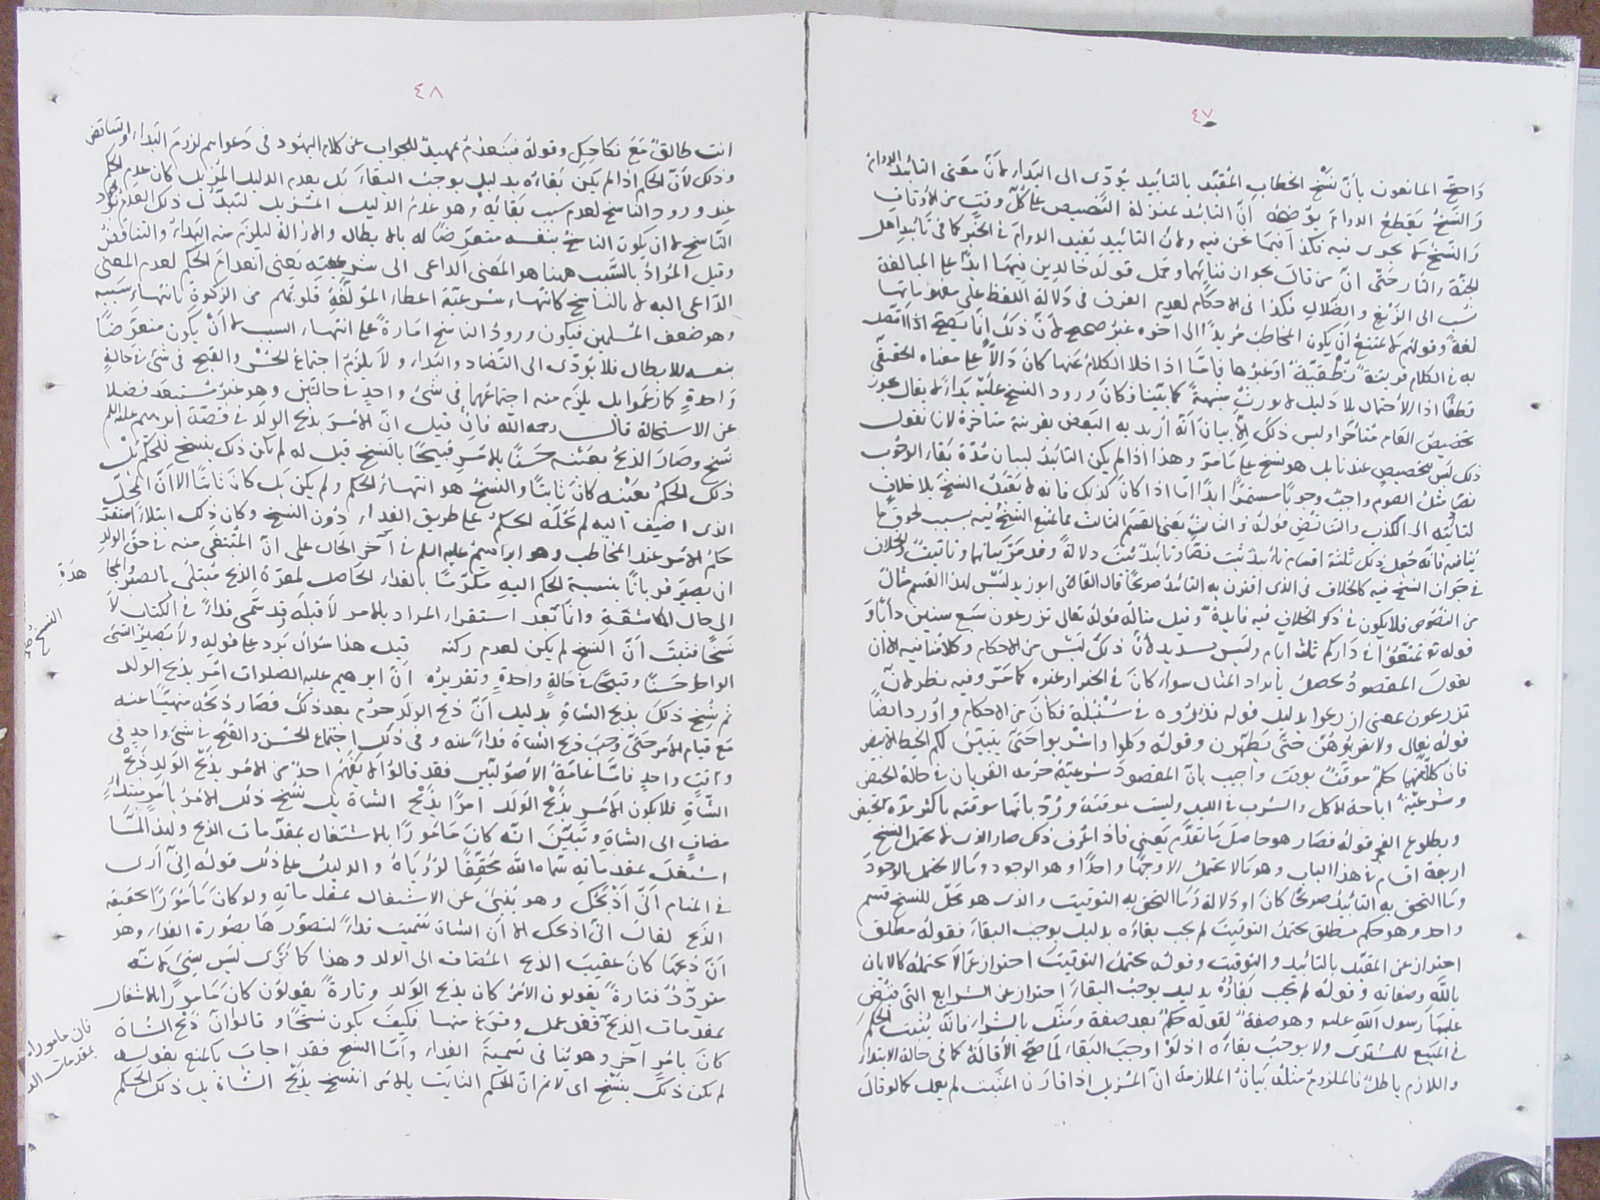 ٤٧
واحتج المانعون بأن نسخ الخطاب المقيد بالتأبيد يؤدى الى البداء لأن معنى التأبيد الدوام
والنسخ يقطع الدوام يوضحه أن التأبيد بمنزلة التنصيص على كل وقت من الأوقات
والنسخ لا يجرى فيه فكذا فيما نحن فيه ولأن التأبيد يفيد الدوام فى الخبر كما فى تأبيد اهل
الجنة والنار حتى ان من قال بجواز فنائهما وحمل قوله خالدين فيها ابدا على المبالغة
نسب الى الزيغ والضلال فكذا فى الاحكام لعدم الفرق فى دلالة اللفظ على
لغة وقولهم لا يمتنع أن يكون المخاطب مريدا الى اخره غير صحيح لأن ذلك انما يصح اذا اتصل
به فى الكلام قرينة نطقية او غيرها فاما اذا خلا الكلام عنها كان دالا على معناه الحقيقى
قطعا اذ الاحتمال بلا دليل لا يورث شبهة كما بينا فكان ورود النسخ عليه بداء لا يقال يجوز
تخصيص العام متأخرا وليس ذلك الا بيان أنه اريد به البعض بقرينة متأخرة لأنا نقول
ذلك ليس بتخصيص عندنا بل هو نسخ على ما مر وهذا اذا لم يكن التأبيد لبيان مدة بقاء الوجوب
نصا مثل الصوم واجب وجوبا مستمرا ابدا اما اذا كان كذلك فانه لا يقبل النسخ بلا خلاف
لتأديته الى الكذب والتناقض قوله والثالث يعنى القسم الثالث مما يمتنع النسخ فيه بسبب لحوق ما
ينافيه فانه جعل ذلك ثلثة اقسام تأبيد ثبت نصا وتأبيد ثبت دلالة وقد مر بيانهما وتاقيت والخلاف
فى جواز النسخ فيه كالخلاف فى الذى اقترن به التأبيد صريحا قال القاضى ابو زيد ليس لهذا القسم مثال
من النصوص فلا يكون فى ذكر الخلاف فيه فايدة وقيل مثاله قوله تعالى تزرعون سبع سنين دأبا و
قوله تمتعوا فى داركم ثلثة ايام وليس بسديد لأن ذلك ليس من الاحكام وكلامنا فيه الا أن
يقول المقصود يحصل بايراد المثال سواء كان فى الخبر او غيره كما مر وفيه نظر لأن
تزرعون بمعنى ازرعوا بدليل قوله فذروه فى سنبله فكان من الاحكام واورد ايضا
قوله تعالى ولا تقربوهن حتى يطهرن وقوله وكلوا واشربوا حتى يتبين لكم الخيط الابيض
فان كلامنهما حكم موقت بوقت واجيب بان المقصود شرعية حرمة القربان فى حالة الحيض
وشرعية اباحة الاكل والشرب فى الليل وليست بموقتة ورد بأنها موقتة بأكثر مدة الحيض
وبطلوع الفجر قوله فصار هو حاصل ما تقدم يعنى فاذا عرف ذلك صار الذى لا يحتمل النسخ
اربعة اقسام فى هذا الباب وهو ما لا يحتمل الا وجها واحدا وهو الوجود وما لا يحتمل الوجود
وما التحق به التأبيد صريحا كان او دلالة وما التحق به التوقيت والذى هو محل للنسخ قسم
واحد وهو حكم مطلق يحتمل التوقيت لم يجب بقاؤه بدليل يوجب البقاء فقوله مطلق
احتراز عن المقيد بالتأبيد والتوقيت وقوله يحتمل التوقيت احتراز عما لا يحتمله كالايمان
بالله وصفاته وقوله لم يجب بقاؤه بدليل يوجب البقاء احتراز عن الشرايع التى قبض
عليها رسول الله عليه وهو صفة لقوله حكم بعد صفة وصف بالشراء فانه يثبت الحكم
فى المبيع للمشترى ولا يوجب بقاءه اذ لو اوجب البقاء لما صح الاقالة كما فى حالة الابتداء
واللازم باطل فالملزوم مثله بيان الملازمة ان المزيل اذا قارن المثبت لم يعمل كما لو قال
٤٨
انت طالق مع نكاحك وقوله فينعدم تمهيد للجواب عن كلام اليهود فى دعواهم لزوم البداء والتناقض
وذلك لأن الحكم اذا لم يكن بقاؤه بدليل يوجب البقاء بل بعدم الدليل المزيل كان عدم الحكم
عند ورود الناسخ لعدم سبب بقائه وهو عدم الدليل المزيل لتبدل ذلك العدم بوجود
الناسخ لا ان يكون الناسخ بنفسه متعرضا له بالابطال والازالة ليلزم منه البداء والتناقض
وقيل المراد بالسبب ههنا هو المعنى الداعى الى شرعيته يعنى انعدام الحكم لعدم المعنى
الداعى اليه لا بالناسخ كانتهاء شرعية اعطاء المؤلفة قلوبهم من الزكوة بانتهاء سببه
وهو ضعف المسلمين فيكون ورود الناسخ امارة على انتهاء السبب لا أن يكون متعرضا
بنفسه للابطال فلا يؤدى الى التضاد والبداء ولا يلزم اجتماع الحسن والقبح فى شئ فى حالة
واحدة كما زعموا بل يلزم منه اجتماعهما فى شئ واحد فى حالتين وهو غير مستبعد فضلا
عن الاستحالة قال رحمه الله فان قيل ان الامر بذبح الولد فى قصة ابرهيم عليه السلم
نسخ وصار الذبح بعينه حسنا بالامر قبيحا بالنسخ قيل له لم يكن ذلك بنسخ للحكم بل
ذلك الحكم بعينه كان ثابتا والنسخ هو انتهاء الحكم ولم يكن بل كان ثابتا الا ان المحل
الذى اضيف اليه لم يحله الحكم على طريق الفداء دون النسخ وكان ذلك ابتلاء استقر
حكم الامر عند المخاطب وهو ابراهيم عليه السلم فى آخر الحال على ان المبتغى منه فى حق الولد
ان يصير قربانا بنسبة الحكم اليه مكرما بالفداء الحاصل لمعرة الذبح مبتلى بالصبر والمجا هدة
الى حال المكاشفة وانما بعد استقرار المراد بالامر لا قبله وقد سمى فداء فى الكتاب لا
نسخا فثبت ان النسخ لم يكن لعدم ركنه قيل هذا سؤال يرد على قوله ولا يصير الشئ
الواحد حسنا وقبيحا فى حالة واحدة وتقريره ان ابرهيم عليه الصلوات امر بذبح الولد
ثم نسخ ذلك بذبح الشاة بدليل أن ذبح الولد حرم بعد ذلك فصار ذبحه منهيا عنه
مع قيام الامر حتى وجب ذبح الشاة فداء عنه وفى ذلك اجتماع الحسن والقبح فى شئ واحد فى
وقت واحد فاما عامة الأصوليين فقد قالوا لا يفهم احد من الامر بذبح الولد ذبح
الشاة فلا يكون الامر بذبح الولد امرا بذبح الشاة بل نسخ ذلك الامر بأمر مبتدإ
مضاف الى الشاة وتبين انه كان مأمورا بالاشتغال بمقدمات الذبح ولهذا لما
اشتغل بمقدماته سماه الله محققا لرؤياه والدليل على ذلك قوله انى أرى
فى المنام انى اذبحك وهو ينبئ عن الاشتغال بمقدماته ولو كان مأمورا بحقيقة
الذبح لقال انى اذبحك الا ان الشاة سميت فداء لتصورها بصورة الفداء وهو
ان ذبحها كان عقيب الذبح المضاف الى الولد وهذا كما ترى ليس بشئ لأنه
متردد فتارة يقولون الامر كان بذبح الولد وتارة يقولون كان مأمورا بالاشتغال
بمقدمات الذبح فقد عمل وفرغ منها فكيف يكون نسخا وقالوا أن ذبح الشاة
كان بامر آخر وهو ينافى تسمية الفداء وأما الشيخ فقد اجاب بالمنع بقوله
لم يكن ذلك بنسخ اى لانم ان الحكم الثابت بالامر انتسخ بذبح الشاة بل ذلك الحكم
النسخ
فان مامورا
بمقدمات